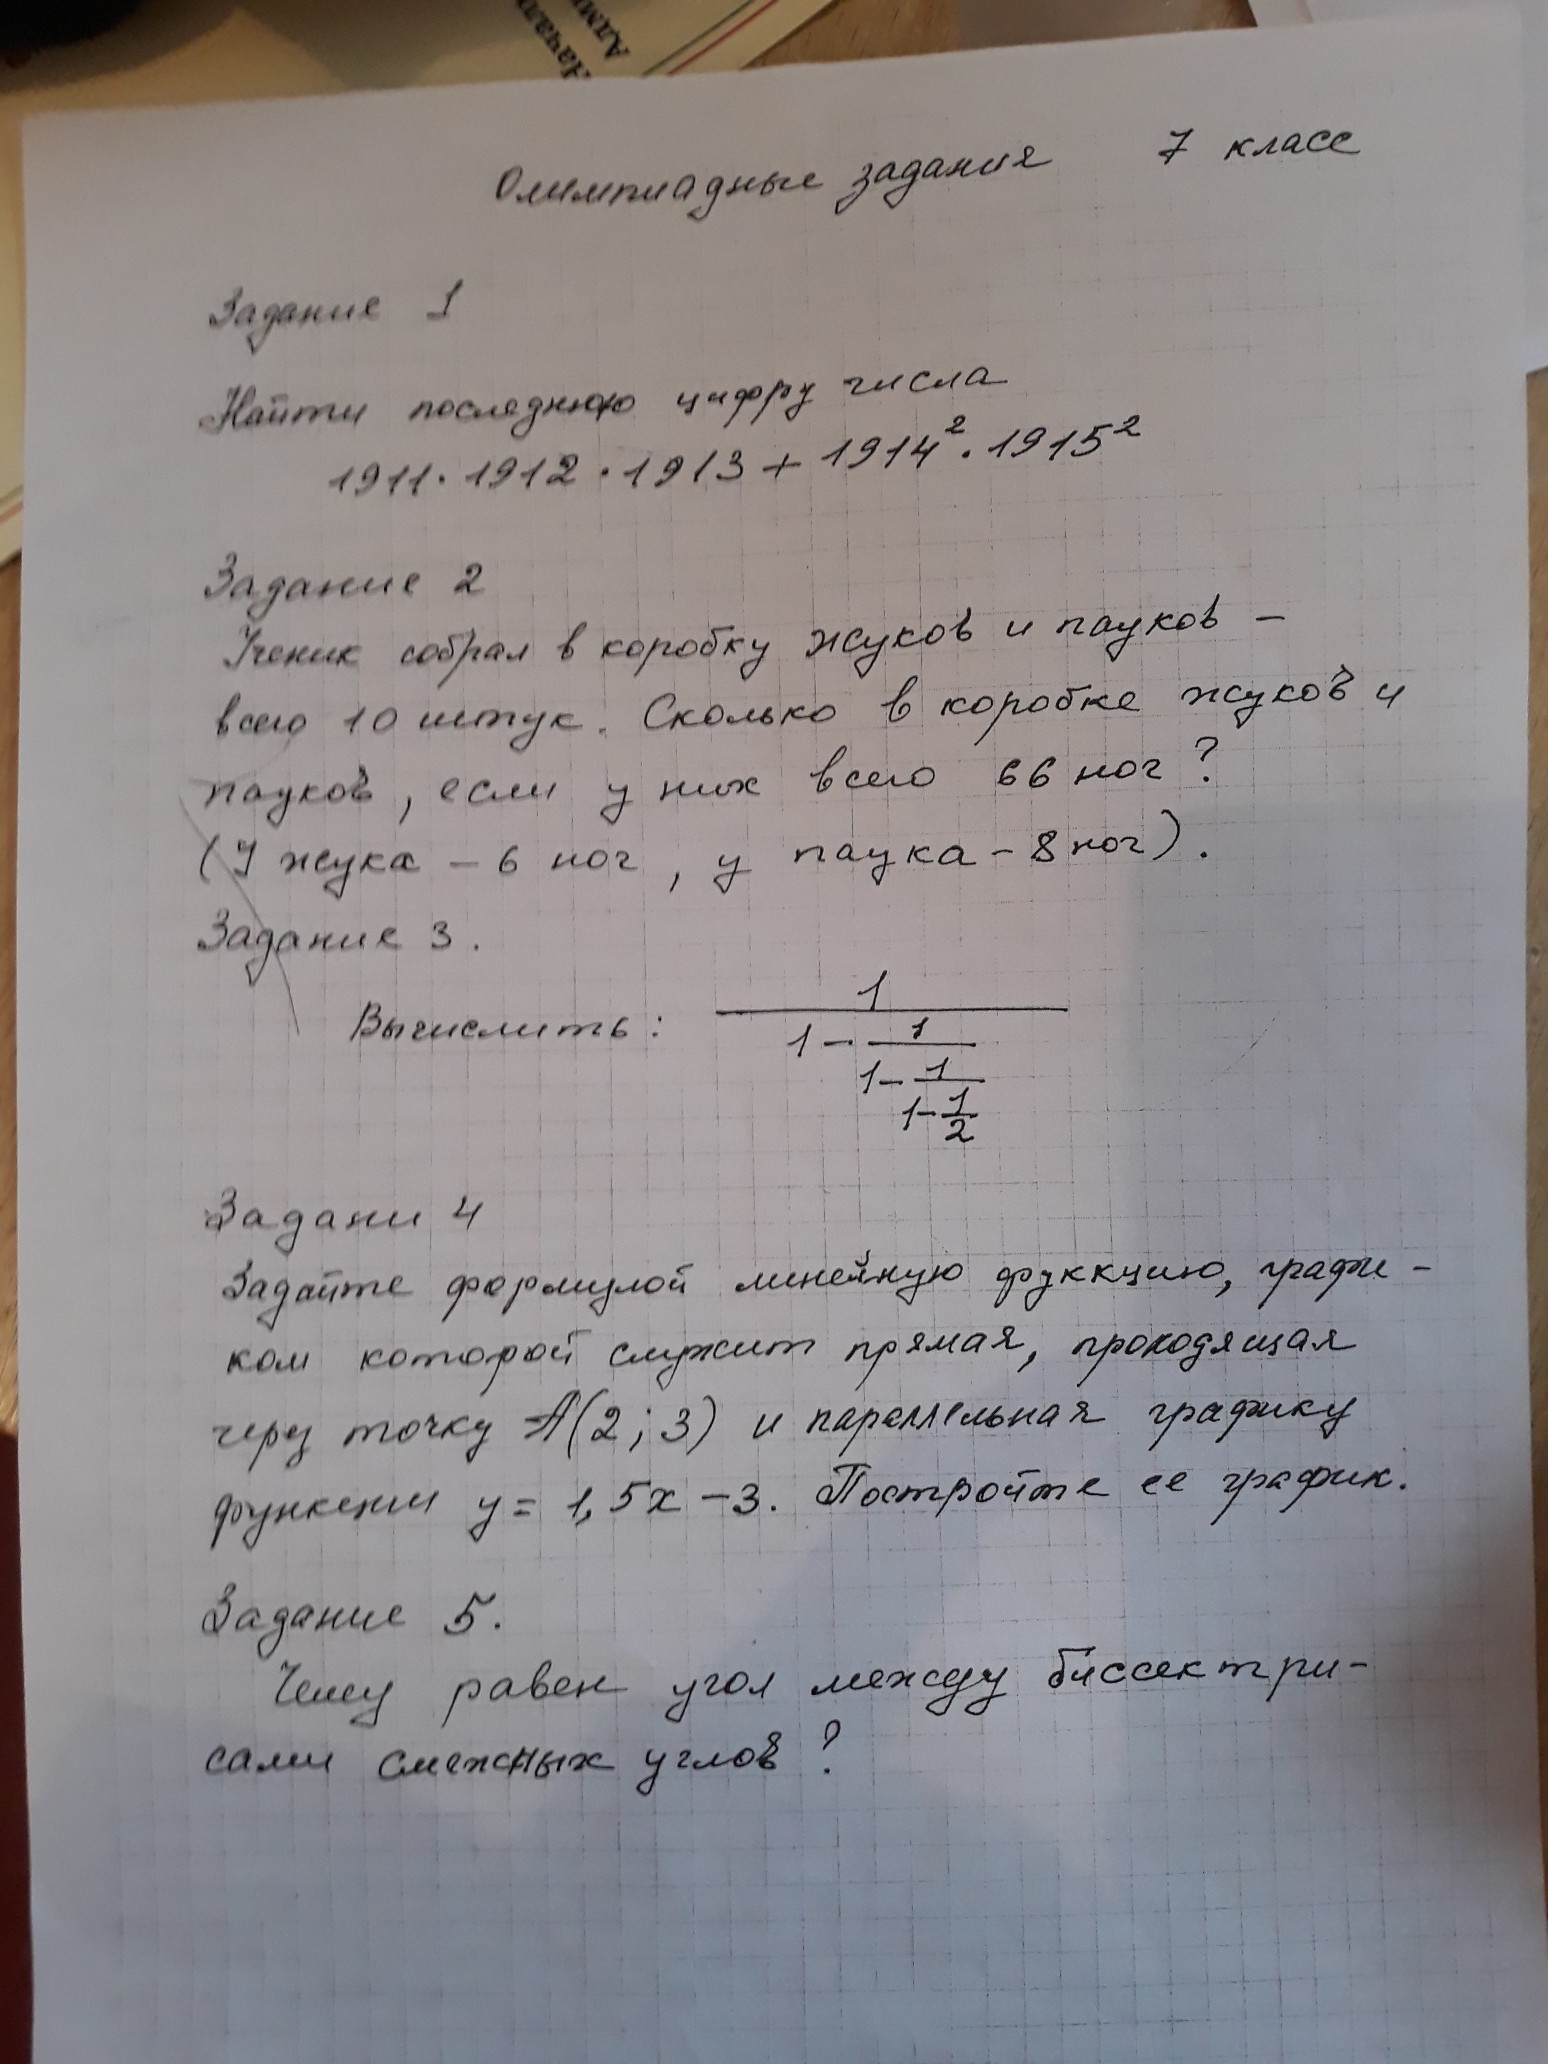 Начало
Алми
Олимпиадные задания 7 класс
Задание 1
Найти последнюю цифру числа
1911 · 1912 · 1913 + 1914² · 1915²
Задание 2
Ученик собрал в коробку жуков и пауков –
всего 10 штук. Сколько в коробке жуков и
пауков, если у них всего 66 ног?
(У жука – 6 ног, у паука – 8 ног).
Задание 3.
Вычислить: 1
1 – 1
1 – 1
1 – 1
2
Задани 4
Задайте формулой линейную фуккцию, графи-
ком которой служит прямая, проходящая
через точку А(2; 3) и параллельная графику
функции y = 1,5x – 3. Постройте ее график.
Задание 5.
Чему равен угол между биссектри-
сами смежных углов?